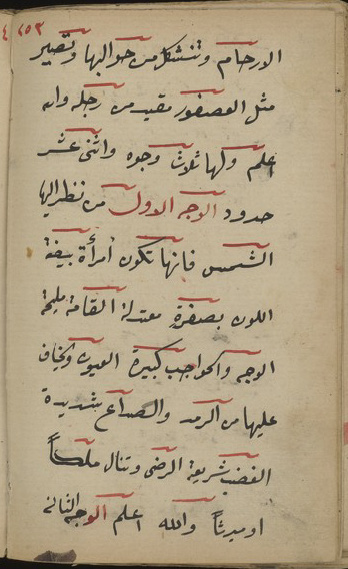 ٢٥٣
الارحام وتتشكل من حوالیها وتصیر
مثل العصفور مقید من رجله والله
اعلم ولها ثلاث وجوه واثنی عشر
حدود الوجه الاول من نظر الیها
الشمس فانها تكون امرأة بیضة
اللون بصفرة معتدلة القامة ملیحة
الوجه والحواجب كبیرة العیون ویخاف
علیها من الرمد والصداع شدیدة
الغضب شریعة الرضی وتنال ملكاً
او میرثاً والله اعلم الوجه الثانی